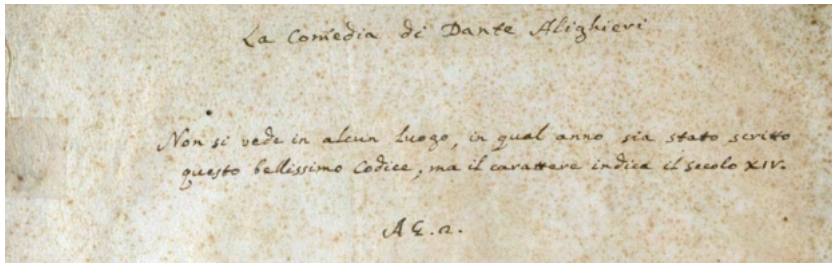 La Comedia di Dante Alighieri
Non si vede in alcun luogo, in qual anno sia stato scritto
questo bellissimo Codice, ma il carattere indica il secolo XIV.